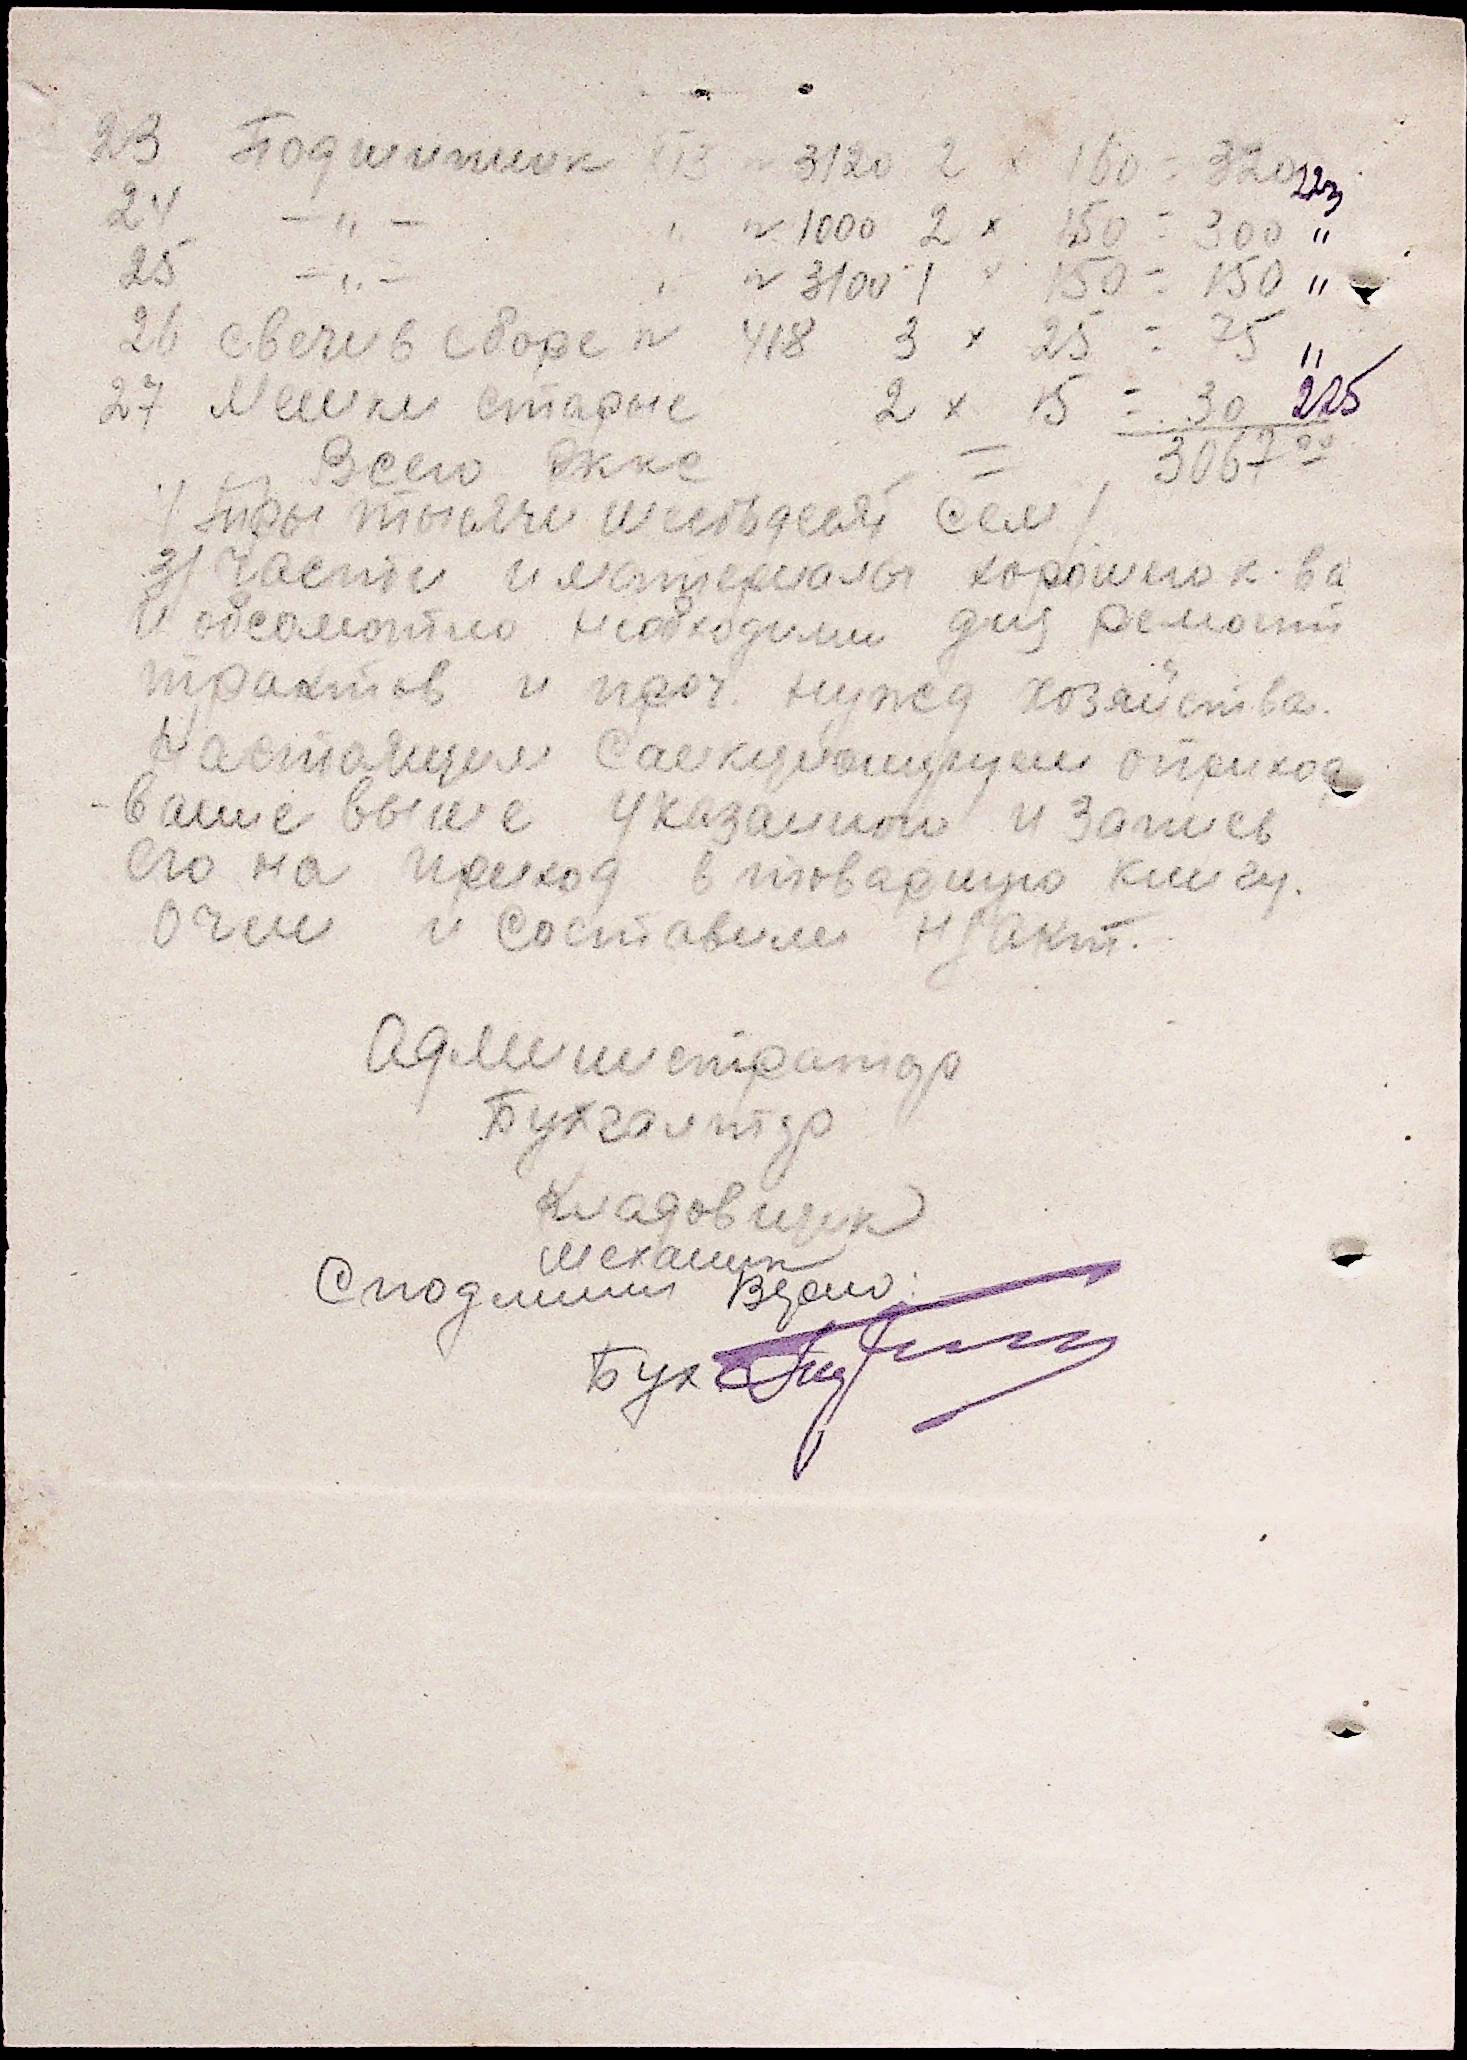 23 Подшипник ХТЗ № 3120 2 × 160 = 320 223
24 — " — " № 1000 2 × 150 = 300 "
25 — " — " № 3100 1 × 150 = 150 "
26 свечи в сборе № 418 3 × 25 = 75 "
27 Мешки старые 2 × 15 = 30 225
Всего = 3067 00
/ Три тысячи шестьдесят сем /
З/части и материалы хорошго к-ва
и обсомотно необходими для ремонт
трактов и проч. нужед хозяйства.
Настоящим санкционируем оприход
-вание выше указанной и запись
его на приход в товарную книгу.
О чем и составили н/акт.
Администратор
Бухгалтер
Кладовщик
механик
С подлинни Верно:
Бух